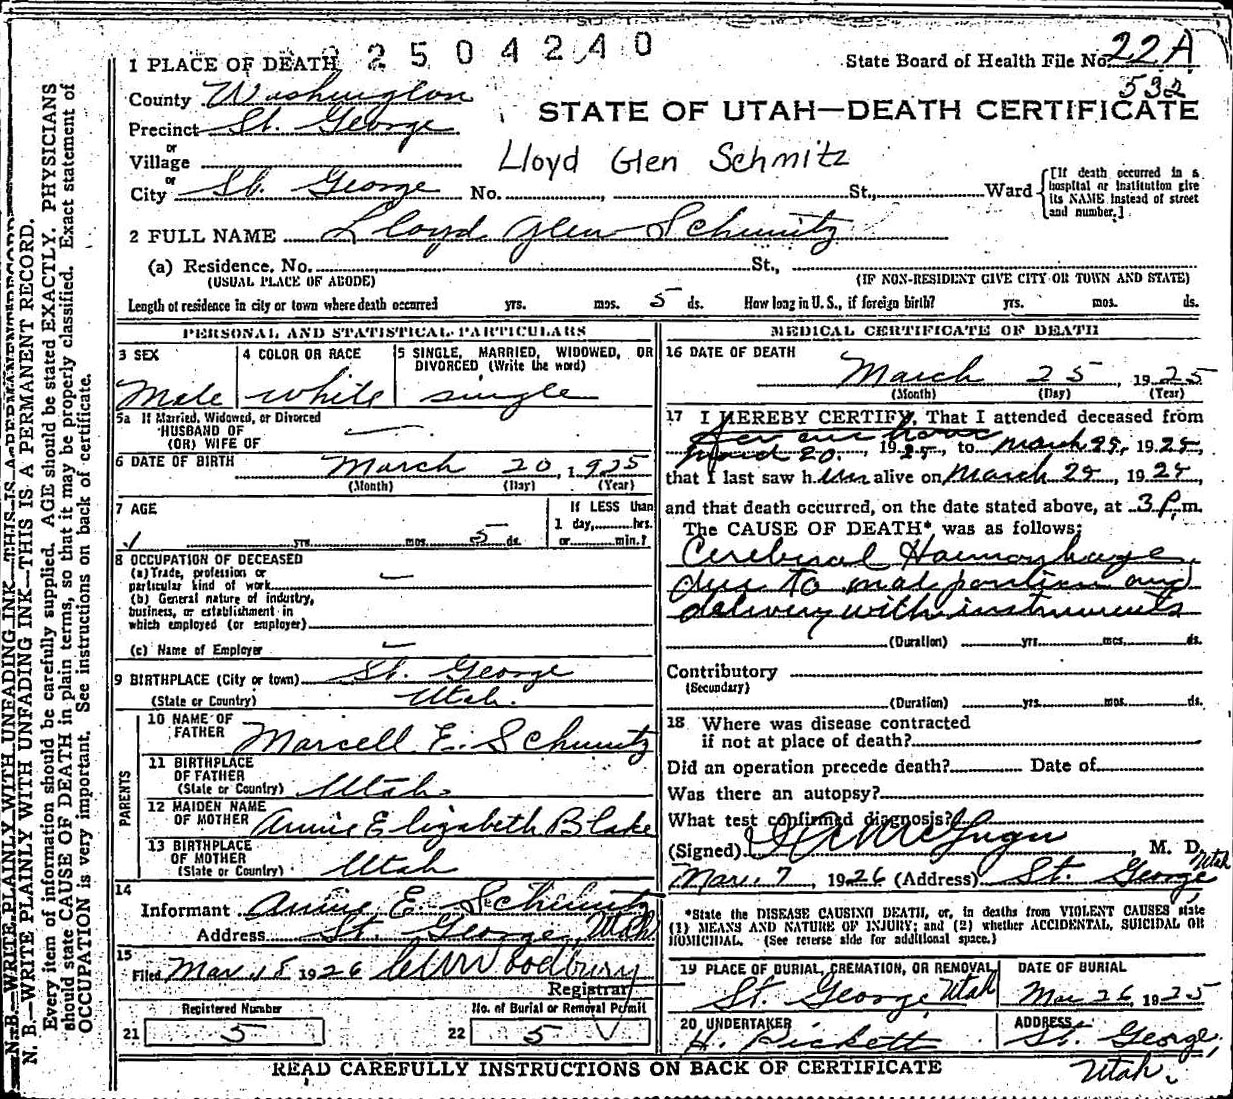 2504240
1 PLACE OF DEATH
State Board of Health File No. 22A
532
County Washington
STATE OF UTAH—DEATH CERTIFICATE
Precinct St. George
or
Village
Lloyd Glen Schmitz
or
City St. George No. , St., Ward
[If death occurred in a hospital or institution give its NAME instead of street and number.]
2 FULL NAME Lloyd Glen Schmitz
(a) Residence. No. St.,
(USUAL PLACE OF ABODE) (IF NON-RESIDENT GIVE CITY OR TOWN AND STATE)
Length of residence in city or town where death occurred yrs. mos. 5 ds. How long in U. S., if foreign birth? yrs. mos. ds.
PERSONAL AND STATISTICAL PARTICULARS
3 SEX
Male
4 COLOR OR RACE
white
5 SINGLE, MARRIED, WIDOWED, OR
DIVORCED (Write the word)
single
5a If Married, Widowed, or Divorced
HUSBAND OF
(OR) WIFE OF
6 DATE OF BIRTH March 20, 1925
(Month) (Day) (Year)
7 AGE
yrs. mos. 5 ds.
If LESS than
1 day, hrs.
or min.?
8 OCCUPATION OF DECEASED
(a) Trade, profession or
particular kind of work
(b) General nature of industry,
business, or establishment in
which employed (or employer)
(c) Name of Employer
9 BIRTHPLACE (City or town) St. George
(State or Country) Utah.
PARENTS
10 NAME OF
FATHER Marcell E. Schmitz
11 BIRTHPLACE
OF FATHER
(State or Country) Utah.
12 MAIDEN NAME
OF MOTHER Annie Elizabeth Blake
13 BIRTHPLACE
OF MOTHER
(State or Country) Utah
14
Informant Annie E. Schmitz
Address St. George, Utah
15
Filed Mar 18 1926
Registrar
Registered Number
21 5
No. of Burial or Removal Permit
22 5
MEDICAL CERTIFICATE OF DEATH
16 DATE OF DEATH
March 25, 1925
(Month) (Day) (Year)
17 I HEREBY CERTIFY, That I attended deceased from
March 20, 1925, to March 25, 1925,
that I last saw him alive on March 25, 1925,
and that death occurred, on the date stated above, at 3 P.m.
The CAUSE OF DEATH* was as follows:
Cerebral Haemorrhage
due to malposition and
delivery with instruments
(Duration) yrs. mos. ds.
Contributory
(Secondary)
(Duration) yrs. mos. ds.
18 Where was disease contracted
if not at place of death?
Did an operation precede death? Date of
Was there an autopsy?
What test confirmed diagnosis?
(Signed) M. D.
Mar. 7, 1926 (Address) St. George, Utah
*State the DISEASE CAUSING DEATH, or, in deaths from VIOLENT CAUSES state
(1) MEANS AND NATURE OF INJURY; and (2) whether ACCIDENTAL, SUICIDAL OR
HOMICIDAL. (See reverse side for additional space.)
19 PLACE OF BURIAL, CREMATION, OR REMOVAL
St. George, Utah
DATE OF BURIAL
Mar 26 1925
20 UNDERTAKER
H. Pickett
ADDRESS
St. George,
Utah.
READ CAREFULLY INSTRUCTIONS ON BACK OF CERTIFICATE
N. B.—WRITE PLAINLY WITH UNFADING INK—THIS IS A PERMANENT RECORD.
Every item of information should be carefully supplied. AGE should be stated EXACTLY. PHYSICIANS
should state CAUSE OF DEATH in plain terms, so that it may be properly classified. Exact statement of
OCCUPATION is very important. See instructions on back of certificate.